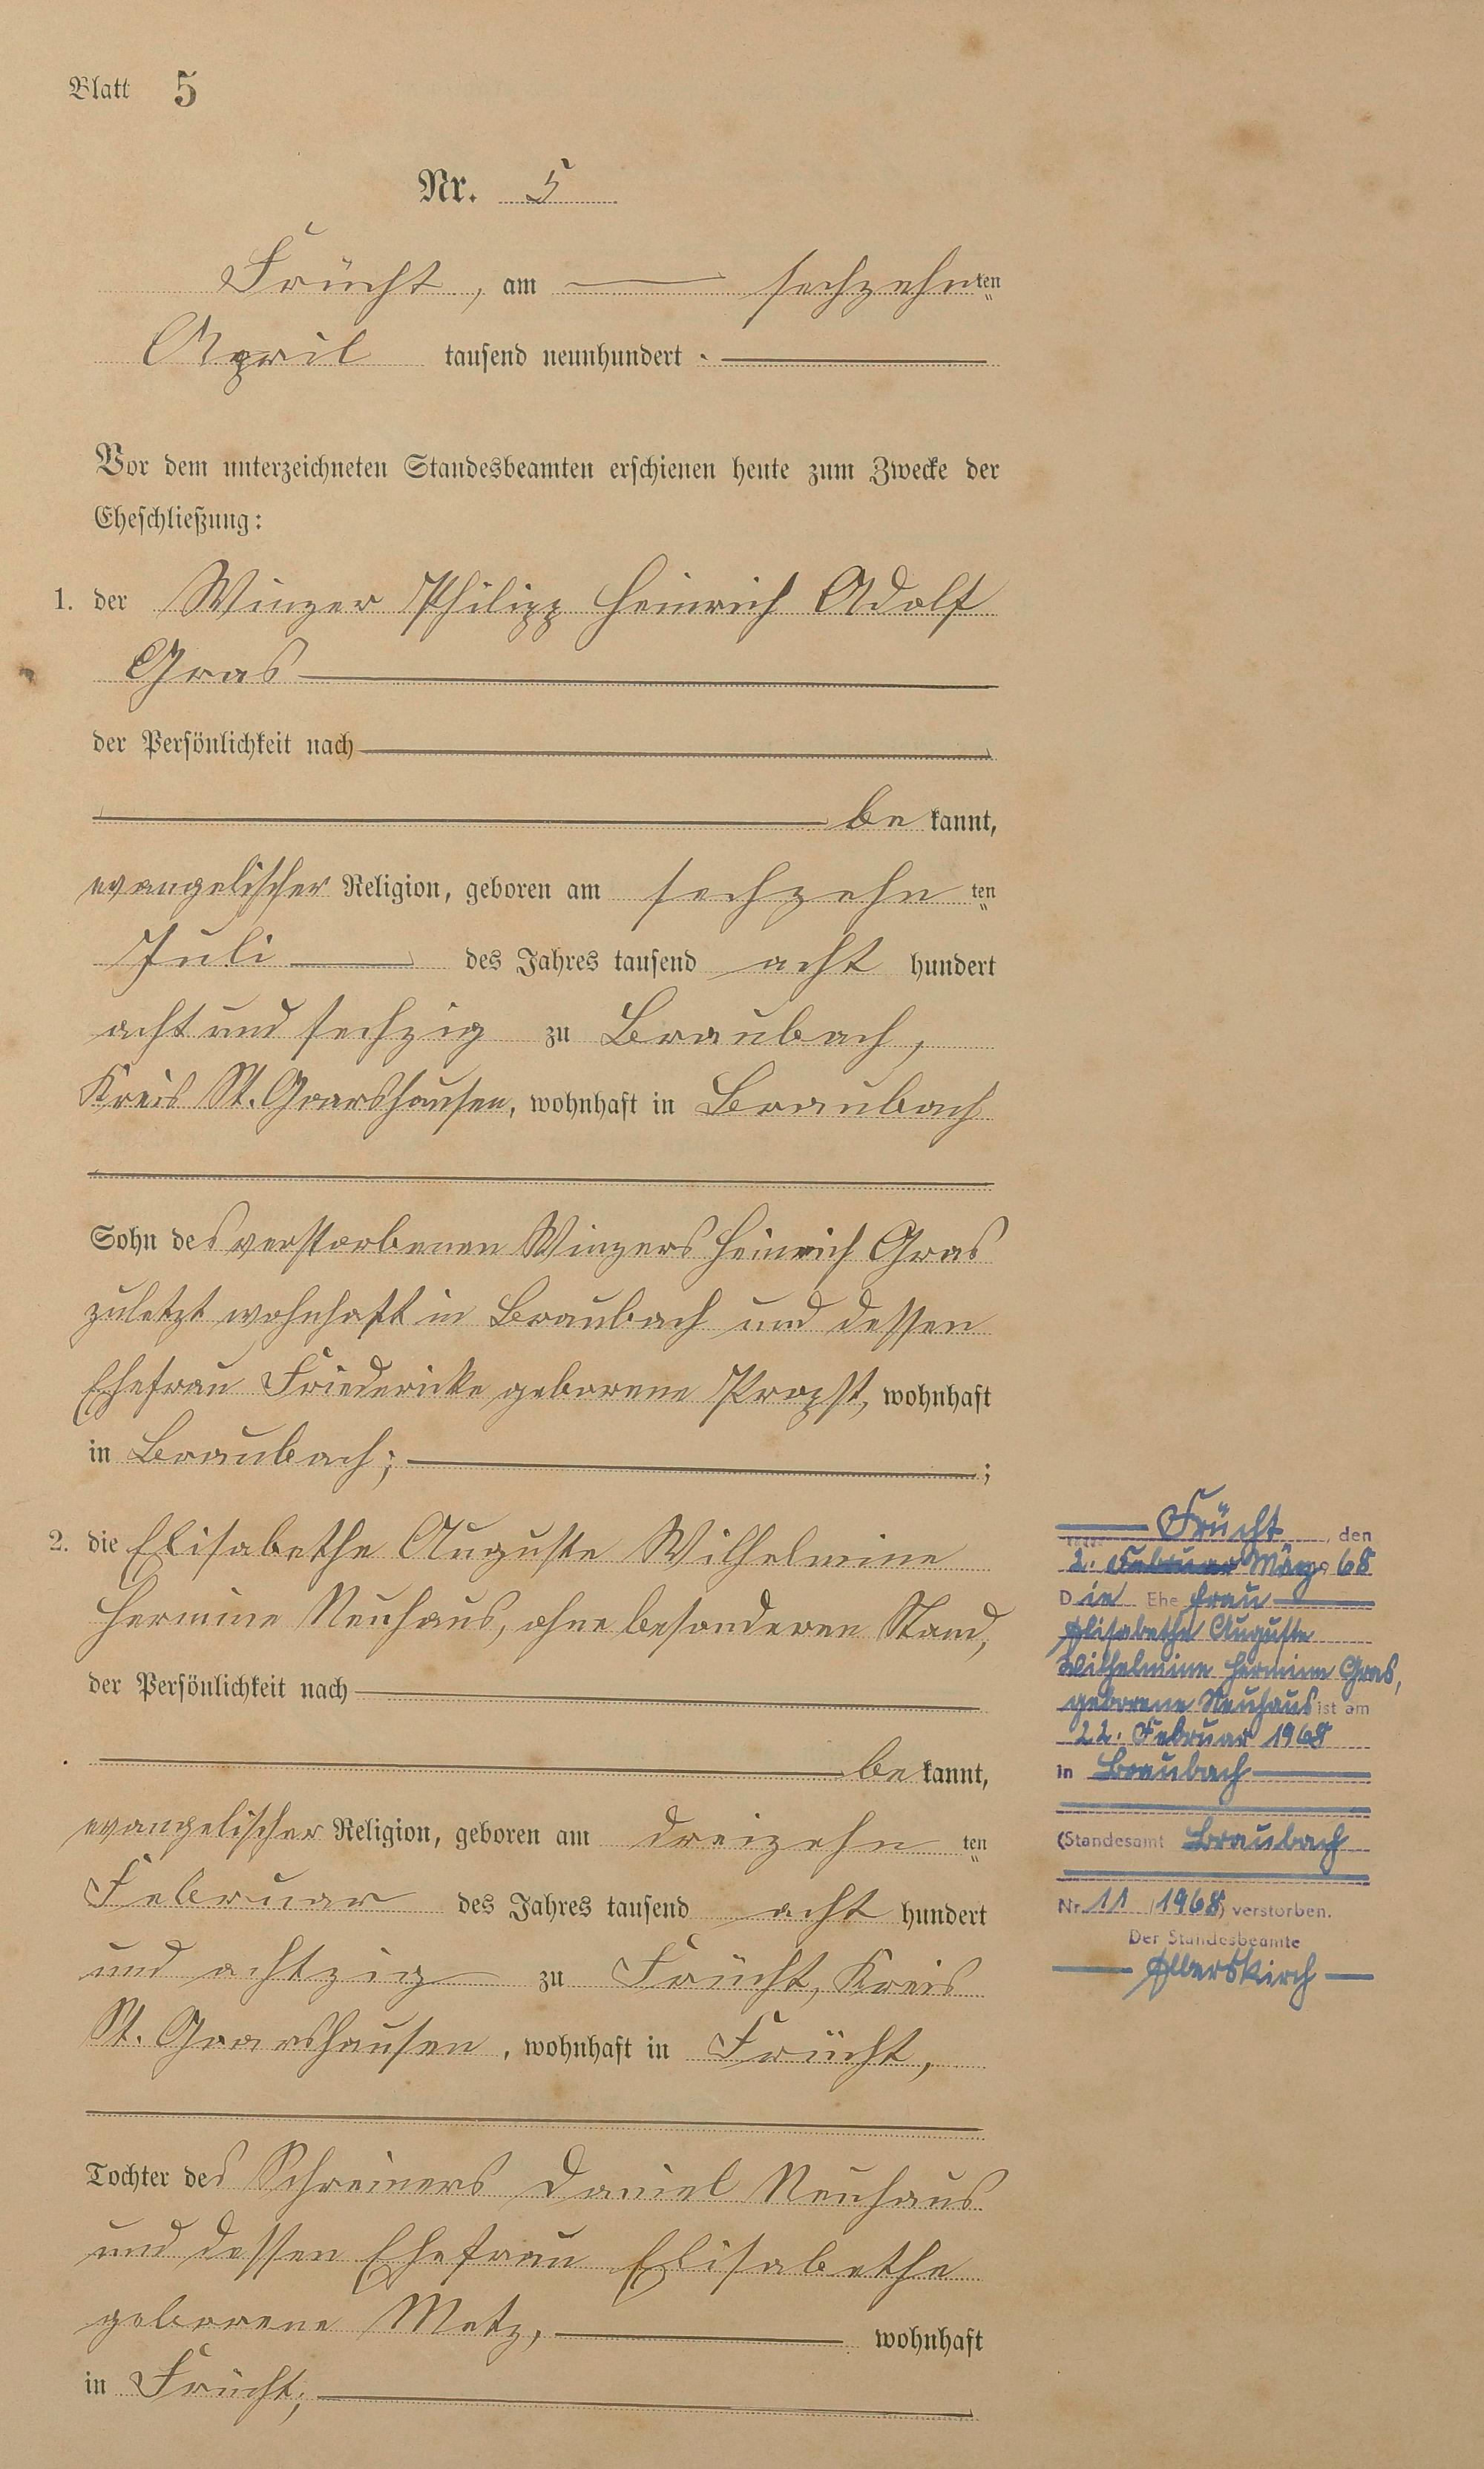 Blatt 5
Nr. 5
Frücht, am — sechzehnten
April tausend neunhundert
Vor dem unterzeichneten Standesbeamten erschienen heute zum Zwecke der
Eheschließung:
1. der Winzer Philipp Heinrich Adolf
Gras
der Persönlichkeit nach
be kannt,
evangelischer Religion, geboren am sechzehn ten
Juli des Jahres tausend acht hundert
acht und sechzig zu Braubach,
Kreis St. Goarshausen, wohnhaft in Braubach
Sohn des verstorbenen Winzers Heinrich Gras
zuletzt wohnhaft in Braubach und dessen
Ehefrau Friedericke geborene Propst, wohnhaft
in Braubach; ;
2. die Elisabethe Auguste Wilhelmine
Hermine Neuhaus, ohne besonderen Stand,
der Persönlichkeit nach
be kannt,
evangelischer Religion, geboren am dreizehn ten
Februar des Jahres tausend acht hundert
und achtzig zu Frücht, Kreis
St. Goarshausen, wohnhaft in Frücht,
Tochter des Schreiners Daniel Neuhaus
und dessen Ehefrau Elisabethe
geborene Metz, wohnhaft
in Frücht;
Frücht, den
2. Februar März 68
Die Ehe frau
Elisabethe Auguste
Wilhelmine Hermine Gras,
geborene Neuhaus ist am
22. Februar 1968
in Braubach
(Standesamt Braubach
Nr. 11 / 1968) verstorben.
Der Standesbeamte
Elberskirch